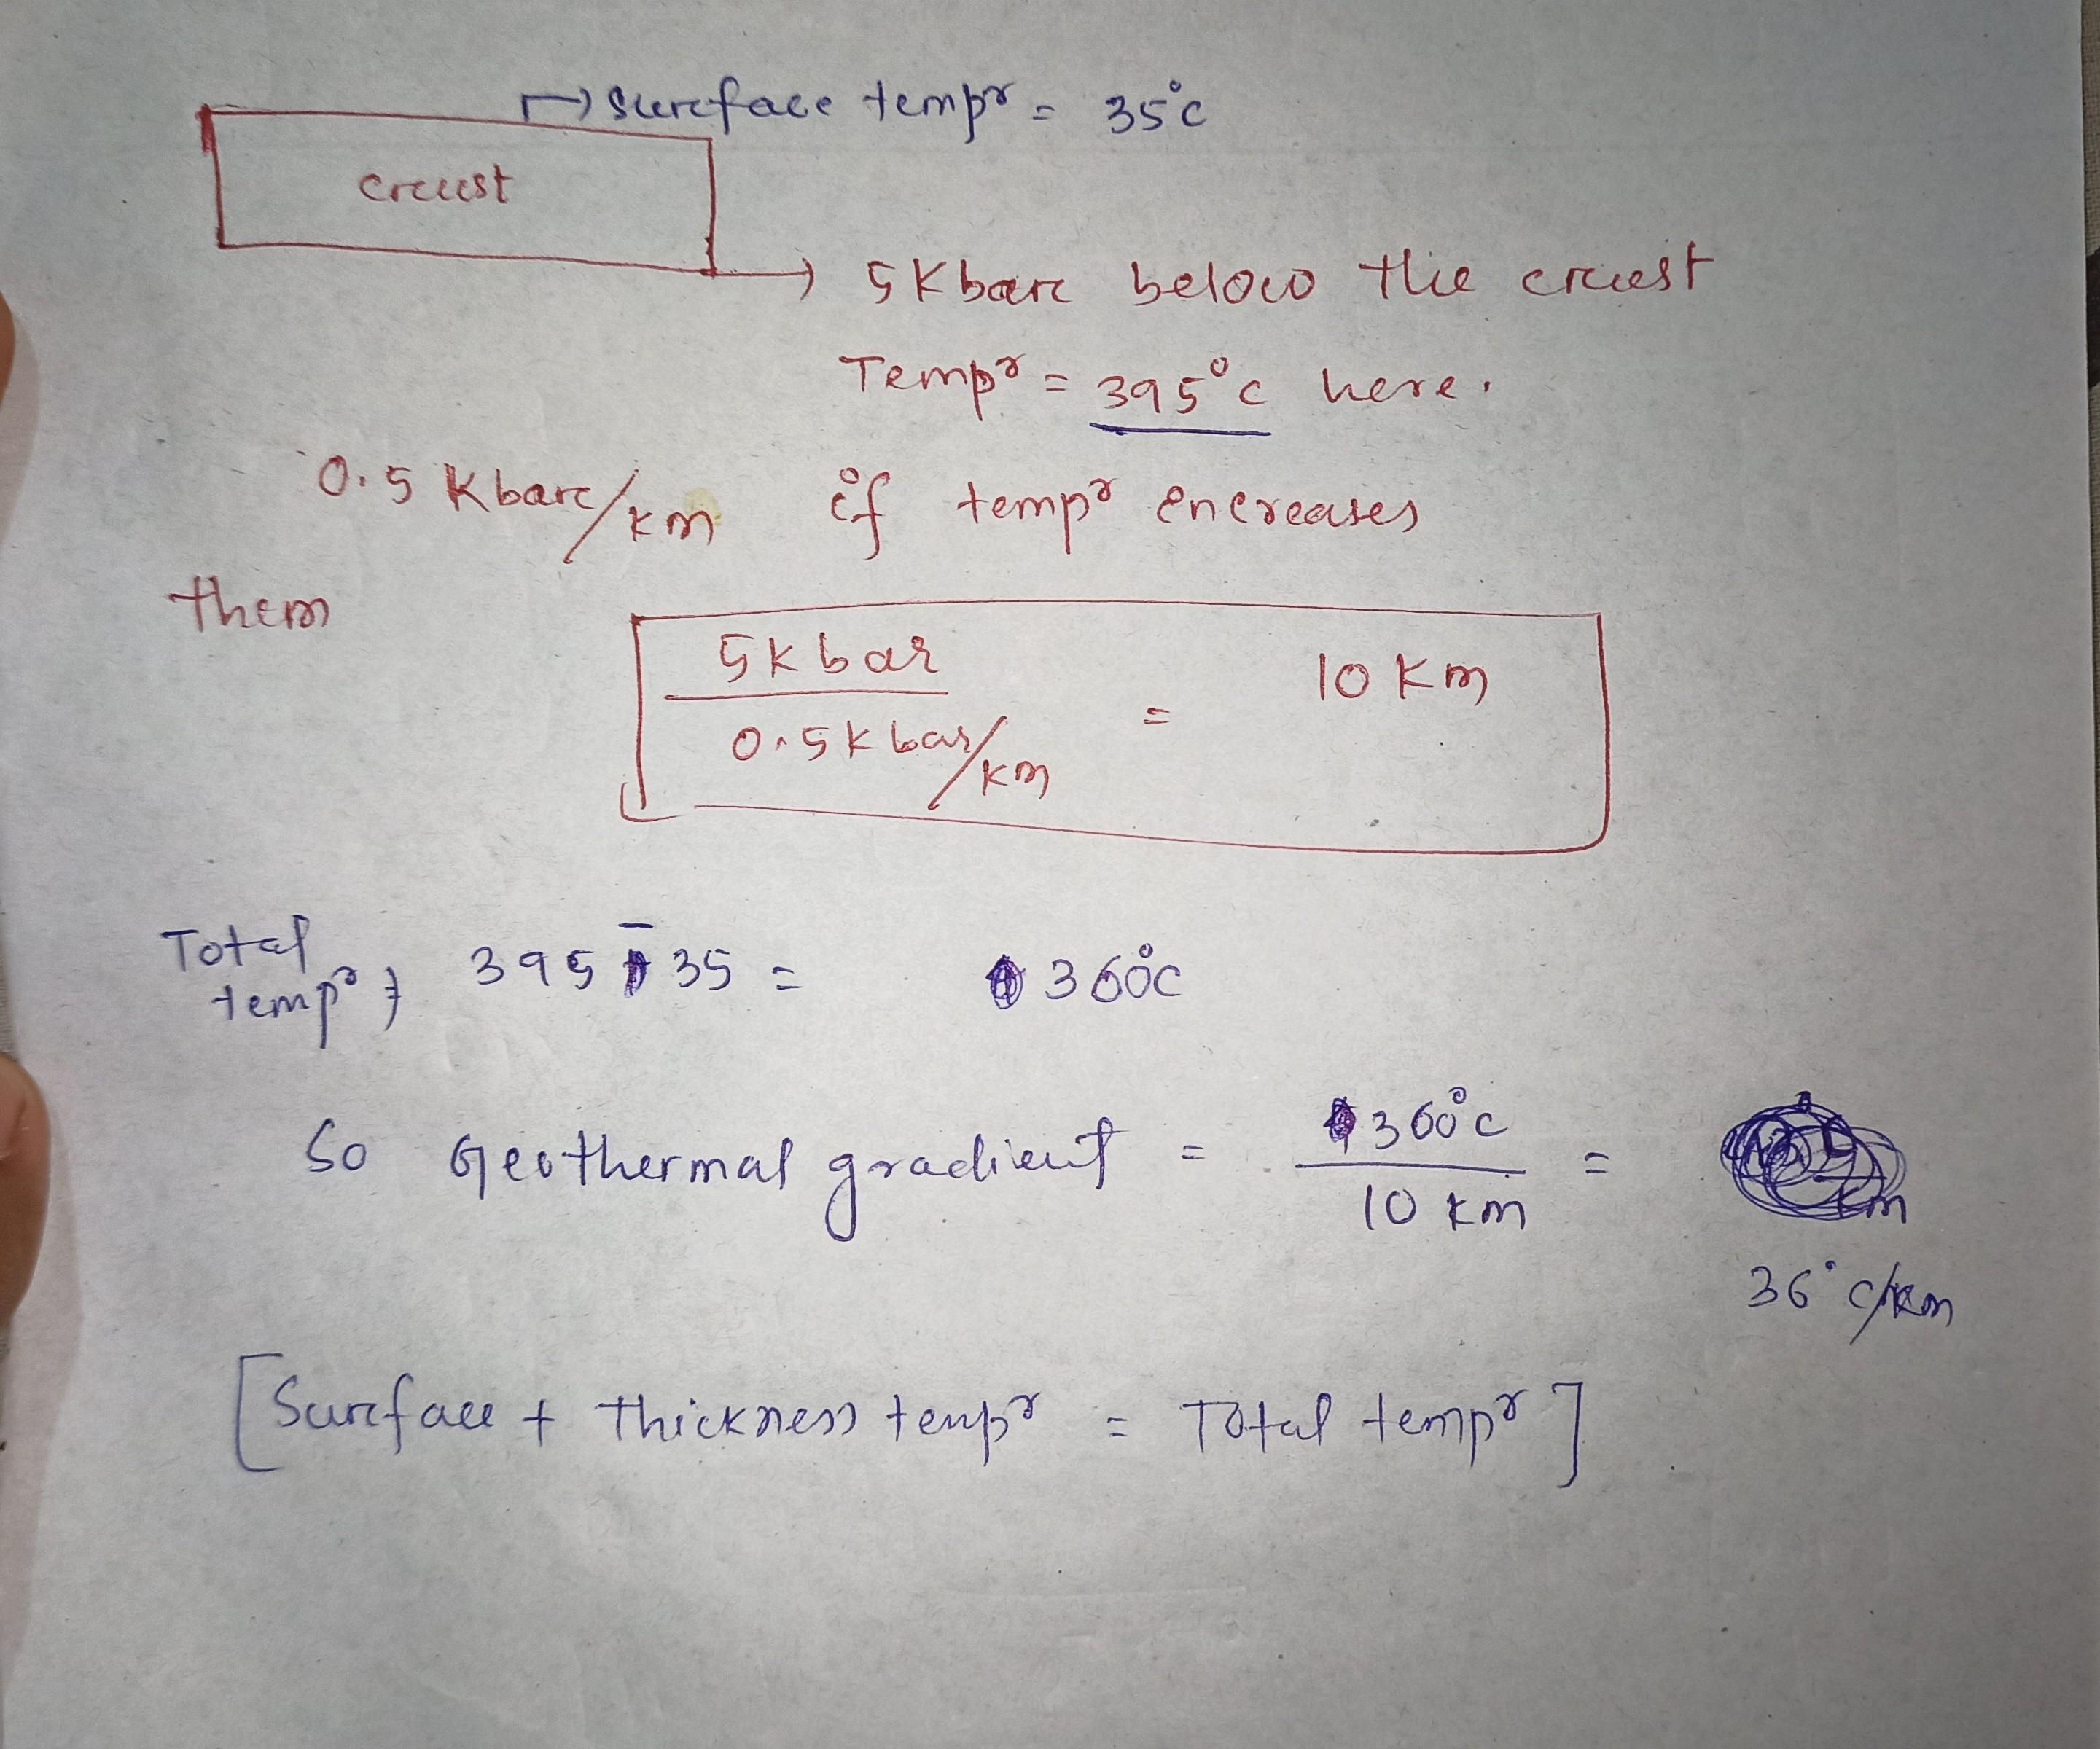 → Surface tempr = 35°C
Crust
→ 5 Kbar below the crust
Tempr = 395°C here.
0.5 Kbar/Km if tempr increases
then
5 K bar
0.5 K bar/Km = 10 Km
Total tempr 395 - 35 = 360°C
So Geothermal gradient = 360°C / 10 Km =
36°C/Km
[Surface + thickness tempr = Total tempr]